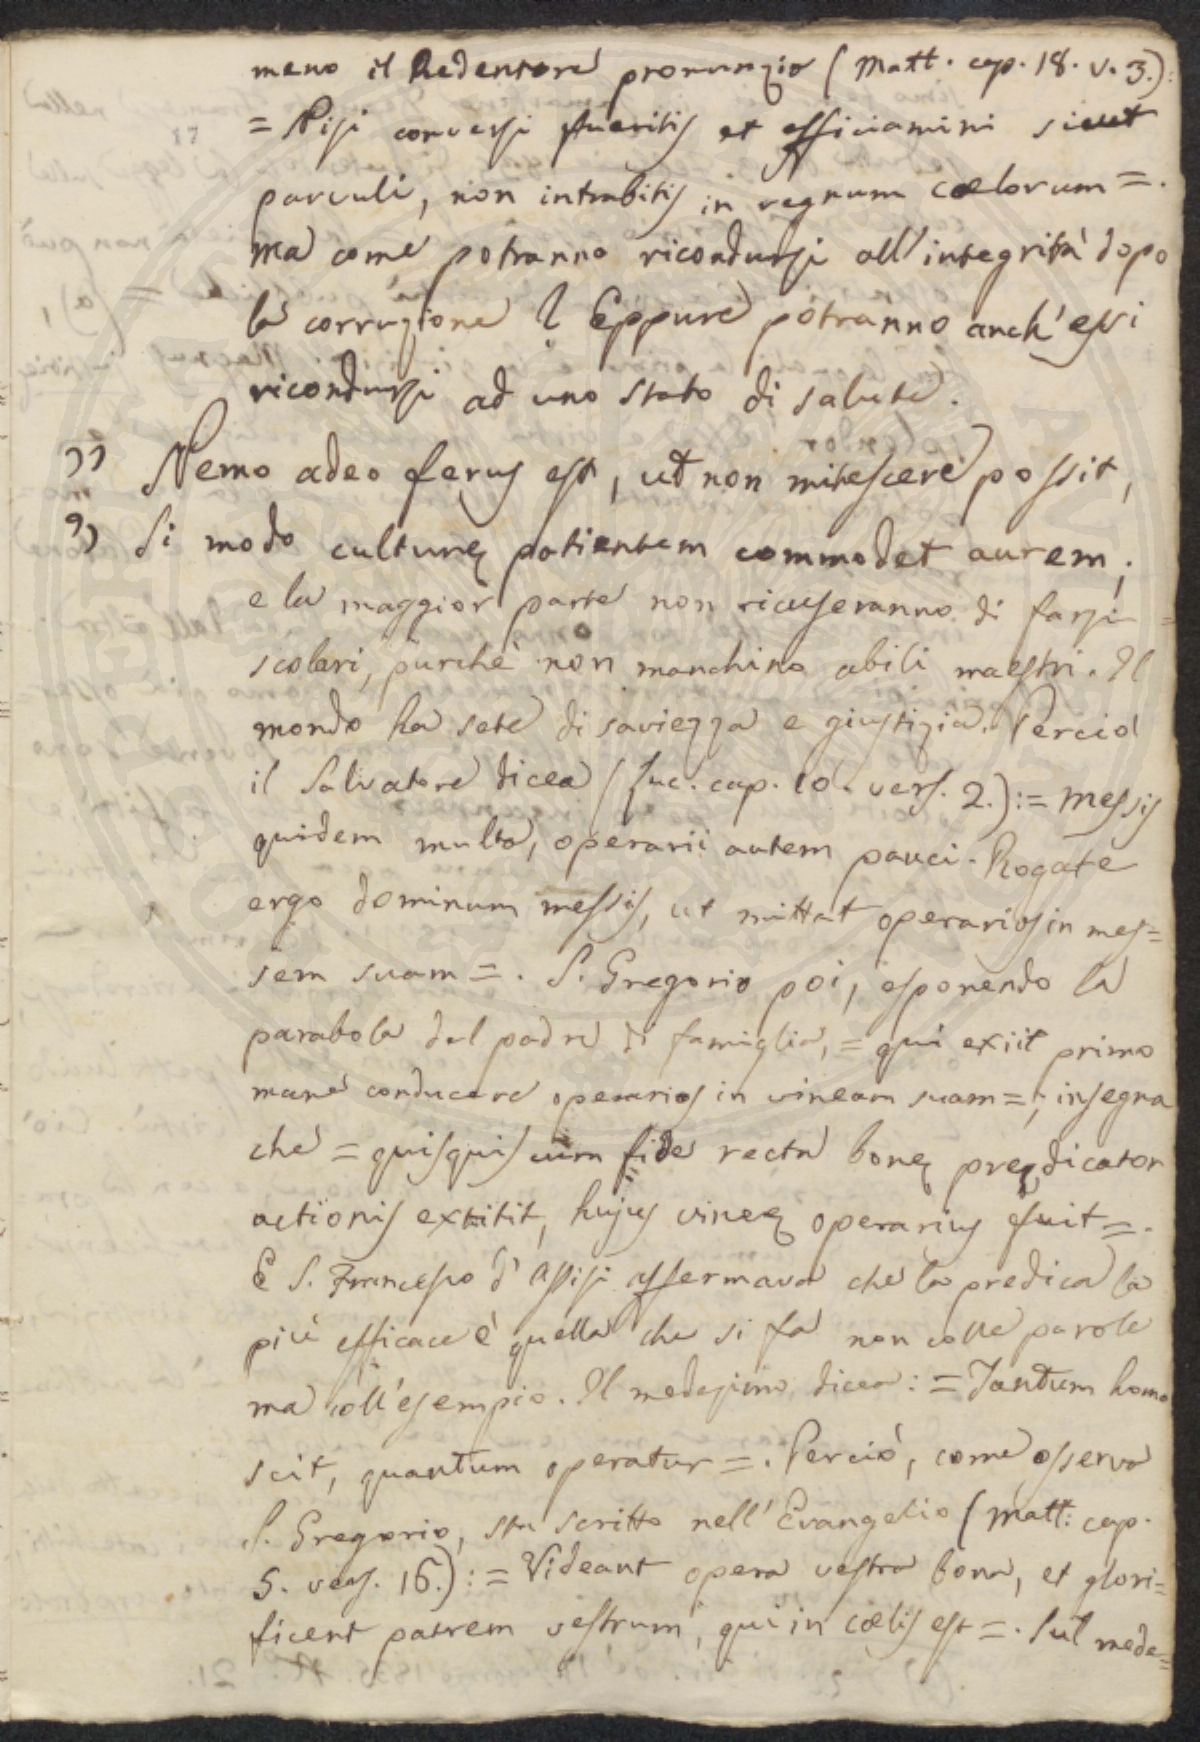 meno il Redentore pronunzio (Matt. cap. 18. v. 3.):
= Nisi conversi fueritis et efficiamini sicut
parvuli, non intrabitis in regnum cœlorum =.
ma come potranno ricondursi all'integrità dopo
la corruzione? Eppure potranno anch'essi
ricondursi ad uno stato di salute.
" Nemo adeo ferus est, ut non mitescere possit,
" Si modo culturę patientem commodet aurem;
e la maggior parte non ricuseranno di farsi
scolari, purchè non manchino abili maestri. Il
mondo ha sete di saviezza e giustizia. Perciò
il Salvatore dicea (Luc. cap. 10. vers. 2.): = Messis
quidem multa, operarii autem pauci. Rogate
ergo dominum messis, ut mittat operarios in mes=
sem suam =. S. Gregorio poi, esponendo la
parabola del padre di famiglia, = qui exiit primo
mane conducere operarios in vineam suam =, insegna
che = quisquis cum fide recta bonę prędicator
actionis extitit, hujus vineę operarius fuit =.
E S. Francesco d'Assisi affermava che la predica la
più efficace è quella che si fa non colle parole
ma coll'esempio. Il medesimo dicea: = Tantum homo
scit, quantum operatur =. Perciò, come osserva
S. Gregorio, sta scritto nell'Evangelio (Matt. cap.
5. vers. 16.): = Videant opera vestra bona, et glori=
ficent patrem vestrum, qui in cœlis est =. Sul mede=